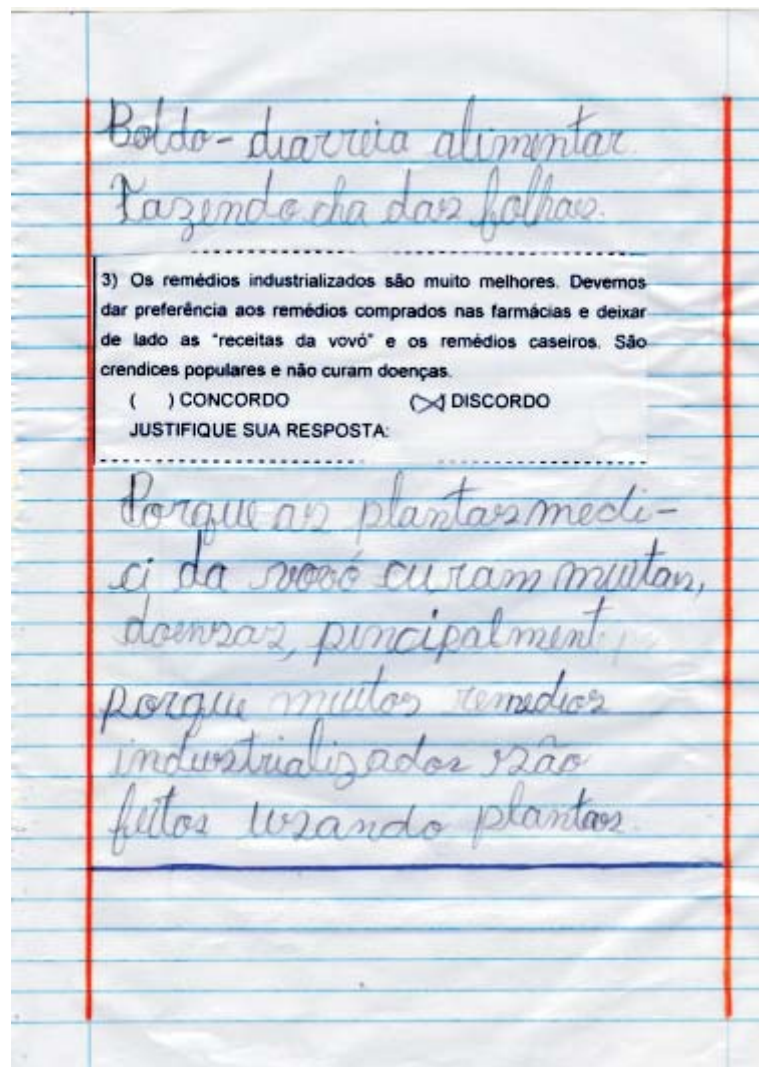 Boldo - diarreia alimentar.
Fazendo cha das folhas.
3) Os remédios industrializados são muito melhores. Devemos
dar preferência aos remédios comprados nas farmácias e deixar
de lado as "receitas da vovó" e os remédios caseiros. São
crendices populares e não curam doenças.
( ) CONCORDO (X) DISCORDO
JUSTIFIQUE SUA RESPOSTA:
Porque as plantas medi-
ci da vovó curam muitas,
doensas, pincipalment
porque muitos remedios
industrializados são
feitos usando plantas.